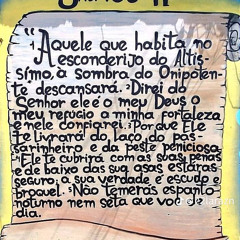 Salmos 91
¹Aquele que habita no
esconderijo do Altís-
símo, à sombra do Onipoten-
te descansará. ²Direi do
Senhor ele é o meu Deus o
meu refúgio a minha fortaleza
e nele confiarei. ³Porque Ele
te livrará do laço do pas-
sarinheiro e da peste perniciosa
⁴Ele te cubrirá com as suas penas
e de baixo das sua asas estarás
seguro; a sua verdade é escudo e
broquel. ⁵Não temerás espanto
noturno nem seta que voe d
dia.